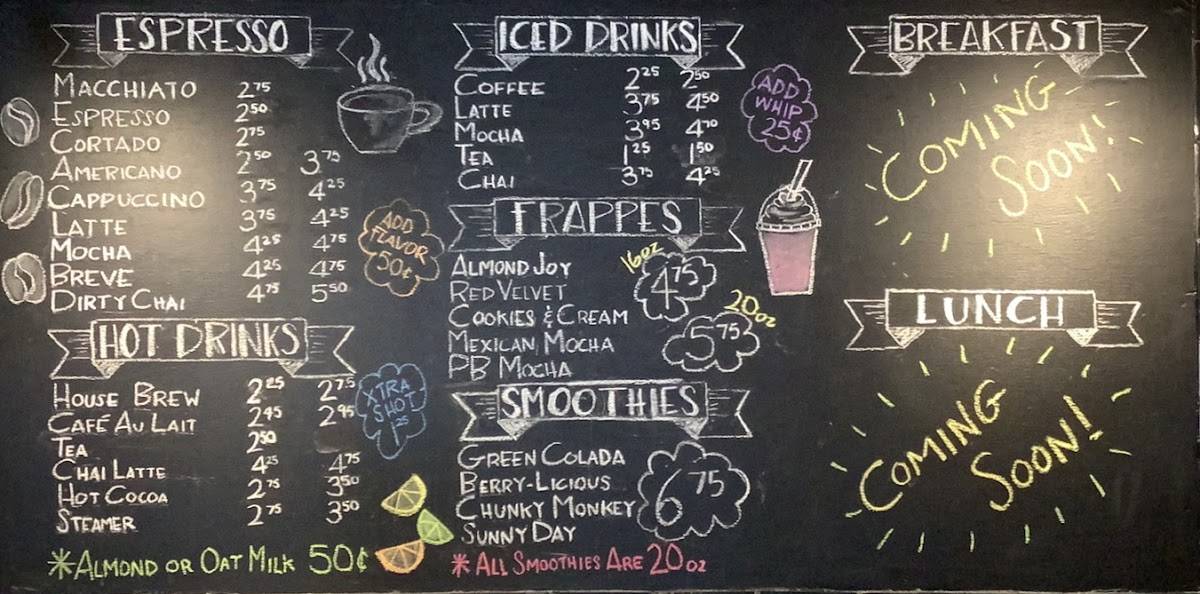 ESPRESSO
MACCHIATO 2.75
ESPRESSO 2.50
CORTADO 2.75
AMERICANO 2.50 3.75
CAPPUCCINO 3.75 4.25
LATTE 3.75 4.25
MOCHA 4.25 4.75
BREVE 4.25 4.75
DIRTY CHAI 4.75 5.50
ADD
FLAVOR
50¢
HOT DRINKS
HOUSE BREW 2.25 2.75
CAFÉ AU LAIT 2.45 2.95
TEA 2.50
CHAI LATTE 4.25 4.75
HOT COCOA 2.75 3.50
STEAMER 2.75 3.50
XTRA
SHOT
1.25
*ALMOND OR OAT MILK 50¢
ICED DRINKS
COFFEE 2.25 2.50
LATTE 3.75 4.50
MOCHA 3.95 4.70
TEA 1.25 1.50
CHAI 3.75 4.25
ADD
WHIP
25¢
FRAPPES
ALMOND JOY
RED VELVET
COOKIES & CREAM
MEXICAN MOCHA
PB MOCHA
16oz
4.75
20oz
5.75
SMOOTHIES
GREEN COLADA
BERRY-LICIOUS
CHUNKY MONKEY
SUNNY DAY
6.75
* ALL SMOOTHIES ARE 20oz
BREAKFAST
COMING
SOON!
LUNCH
COMING
SOON!